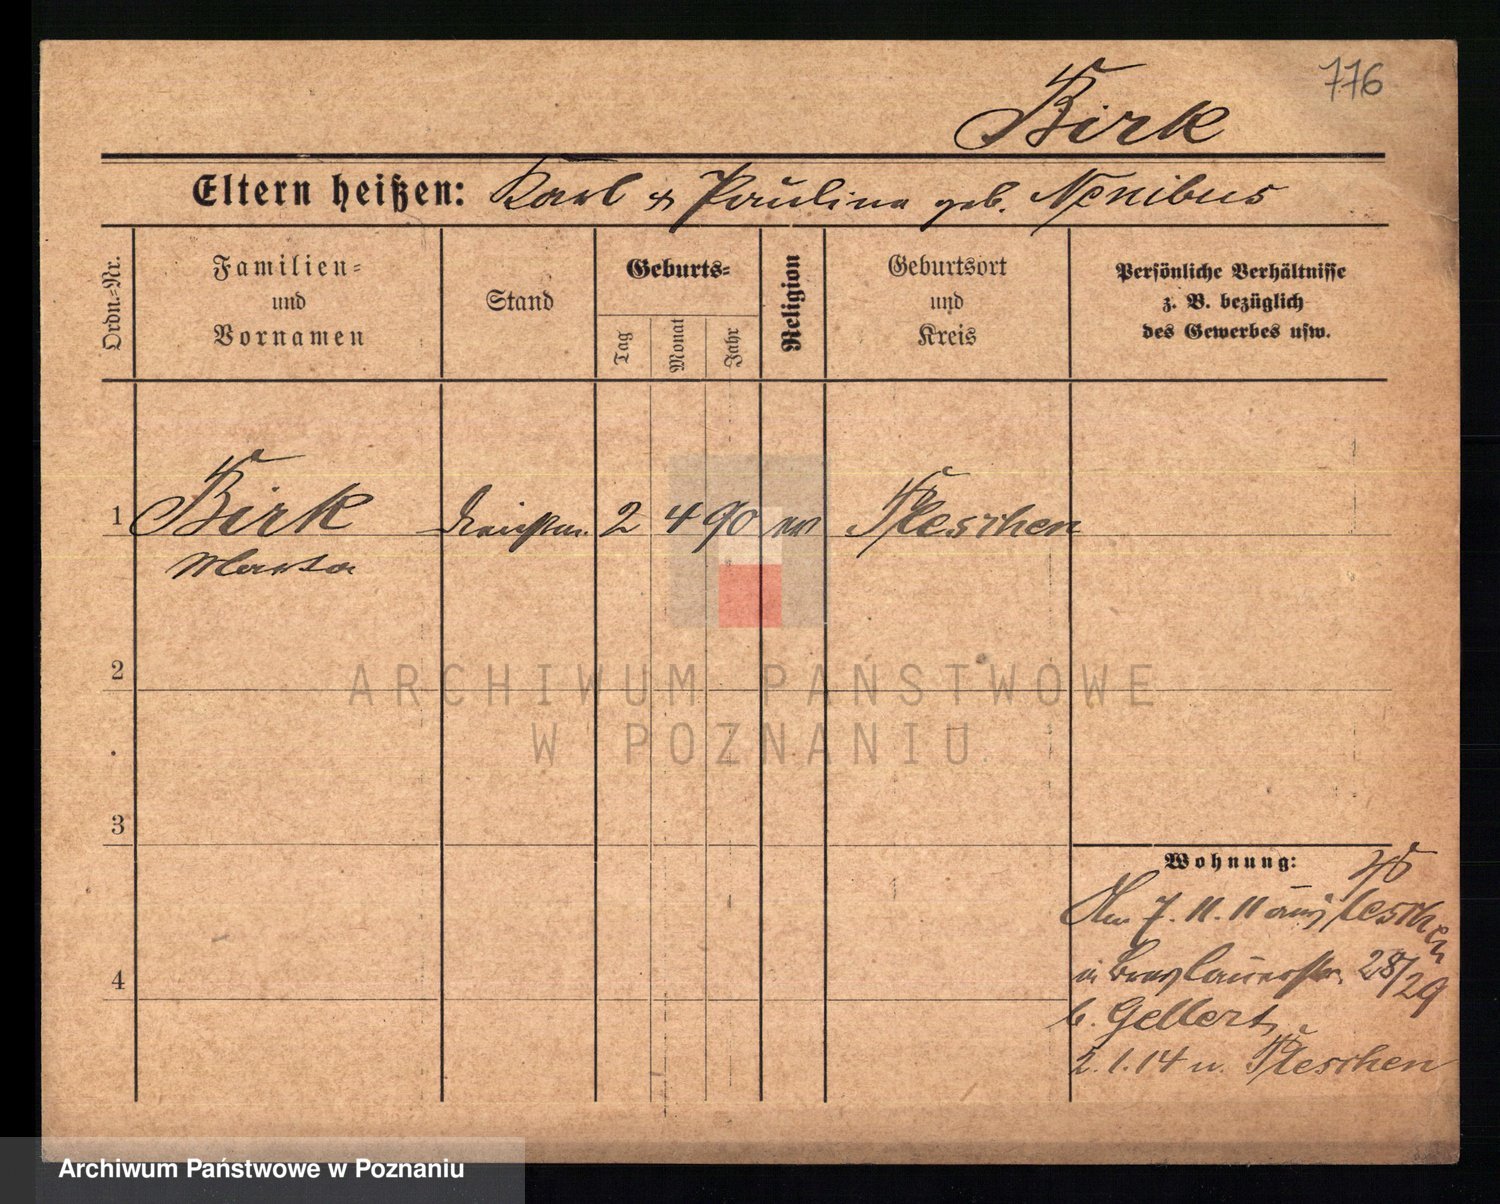 776
Birk
Eltern heißen: Karl & Paulina geb. Nenibus
Ordn.=Nr.
Familien=
und
Vornamen
Stand
Geburts=
Tag
Monat
Jahr
Religion
Geburtsort
und
Kreis
Persönliche Verhältnisse
z. B. bezüglich
des Gewerbes usw.
1 Birk 2 4 90 ev Pleschen
Marta
2
3
4
Wohnung:
Am 7. 11. 11 aus Pleschen
in Breslauerstr. 28/29
b. Gellert
2. 1. 14 n. Pleschen
ARCHIWUM PAŃSTWOWE
W POZNANIU
Archiwum Państwowe w Poznaniu